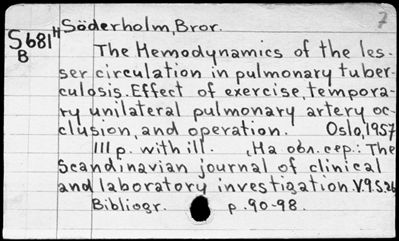 7
S681 H Söderholm, Bror.
B
The Hemodynamics of the les-
ser circulation in pulmonary tuber-
culosis. Effect of exercise, tempora-
ry unilateral pulmonary artery oc-
clusion, and operation. Oslo, 1957
111 p. with ill. , На обл. сер.: The
Scandinavian journal of clinical
and laboratory investigation. V.9. S.26
Bibliogr. p. 90-98.